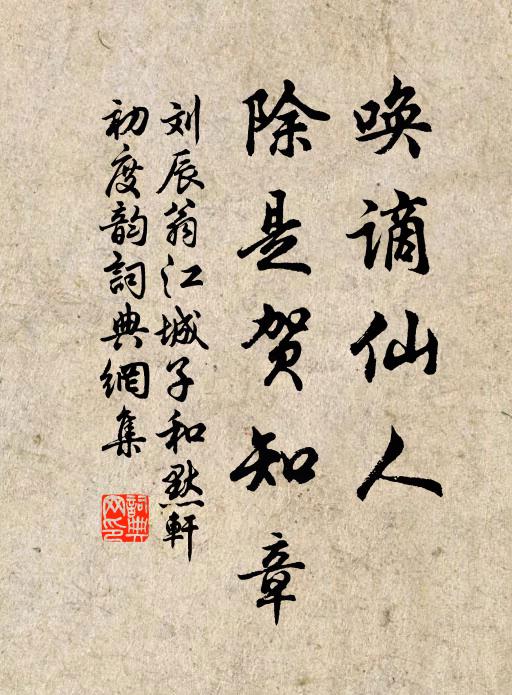 唤谪仙人
除是贺知章
刘辰翁江城子和默轩
初度韵詞典網集
詞典
网印